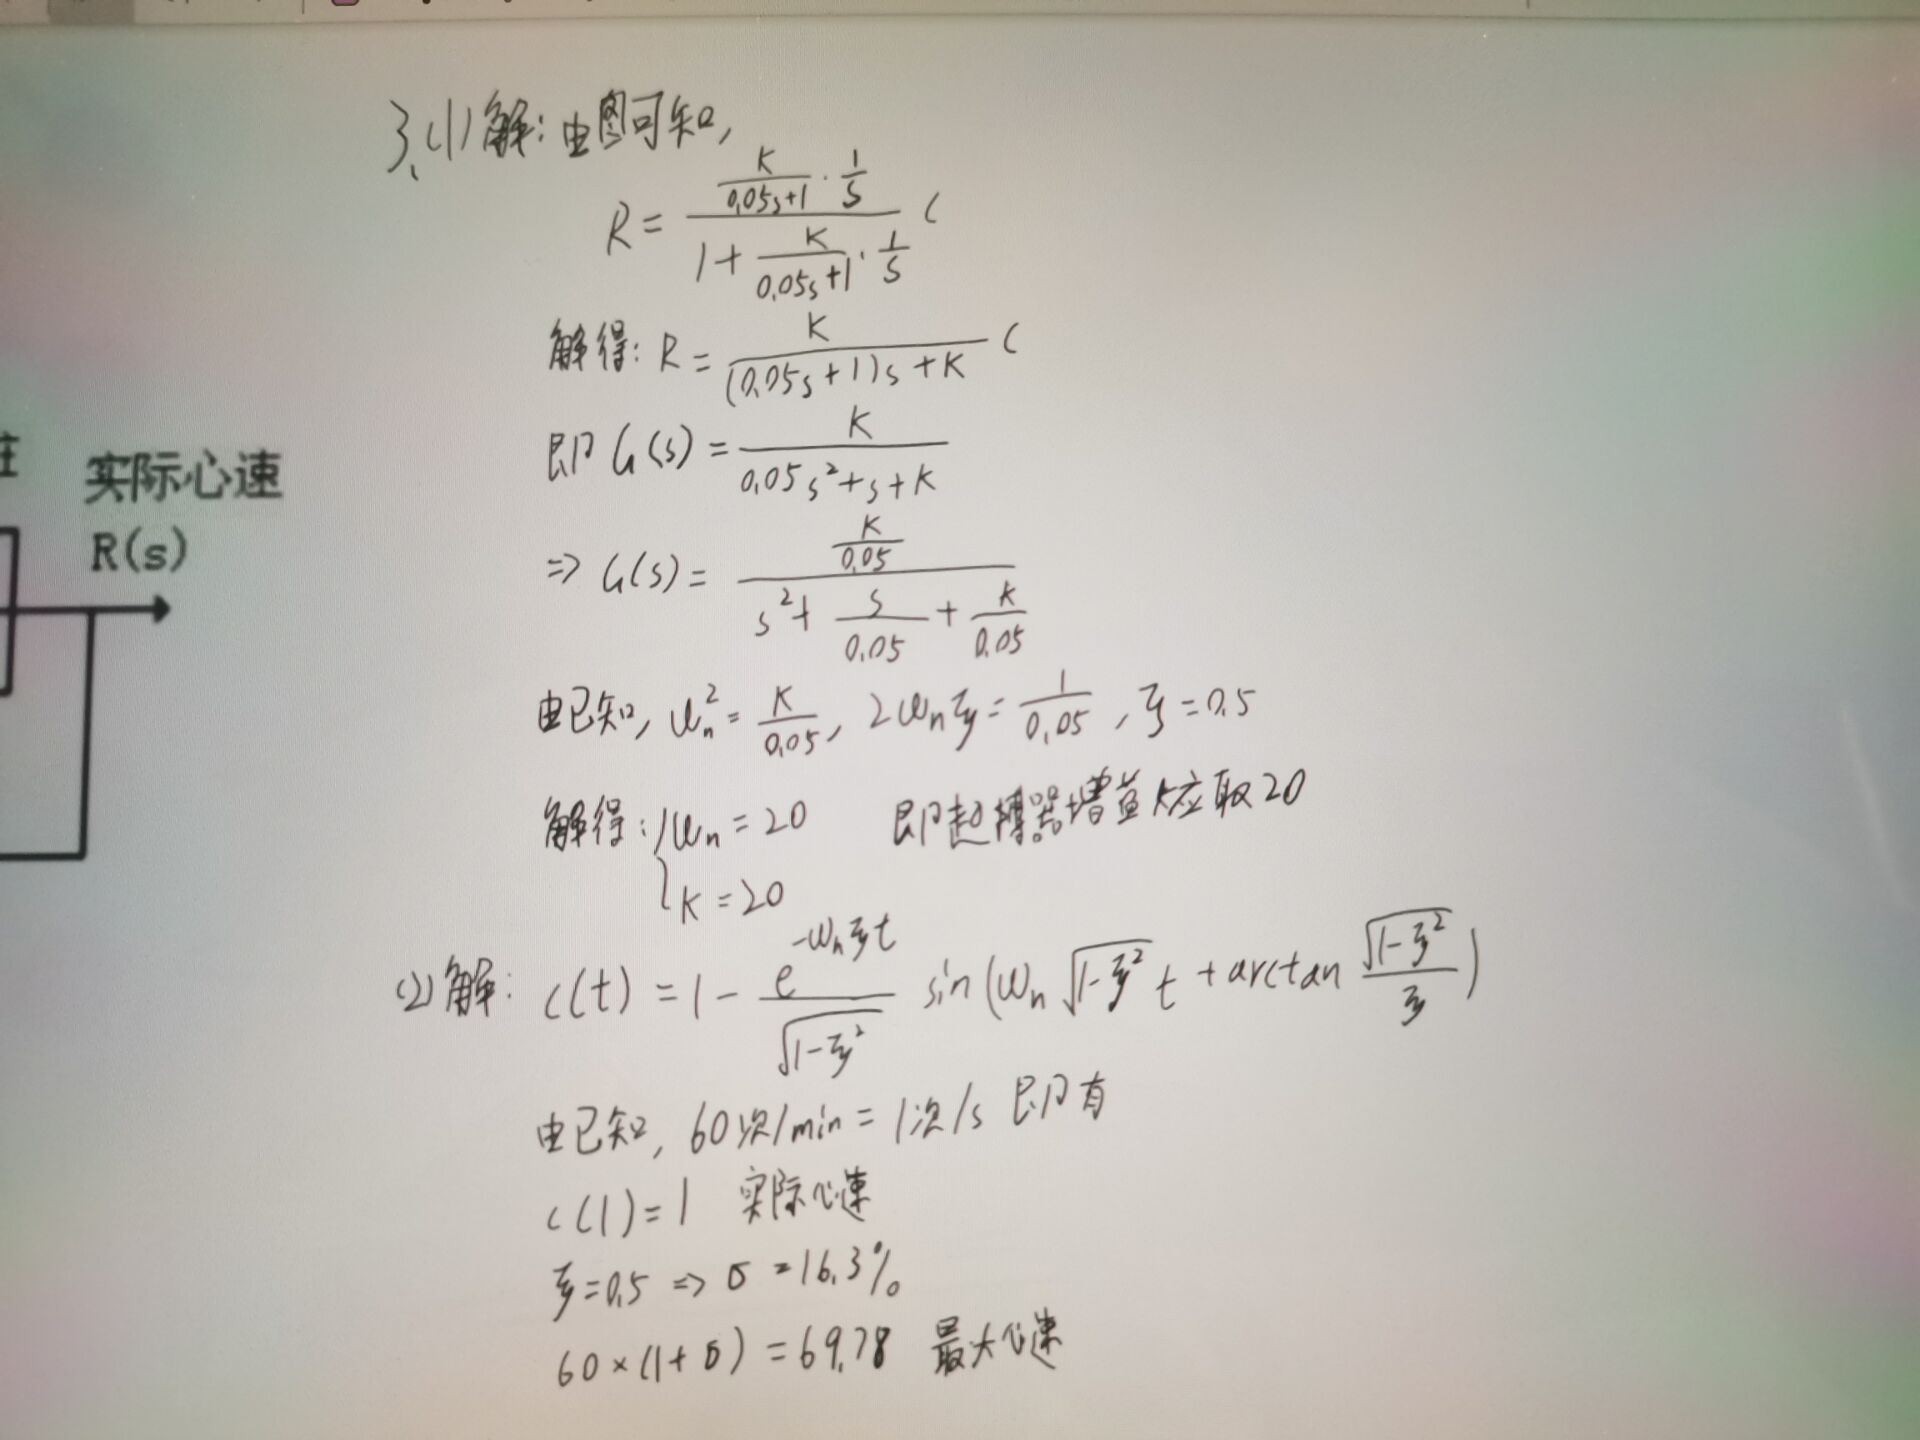 3.(1)解:由图可知,
R = \frac{\frac{K}{0.05s+1}·\frac{1}{s}}{1+\frac{K}{0.05s+1}·\frac{1}{s}} C
解得: R = \frac{K}{(0.05s+1)s+K} C
即 G(s) = \frac{K}{0.05s^2+s+K}
实际心速
R(s)
=> G(s) = \frac{\frac{K}{0.05}}{s^2+\frac{s}{0.05}+\frac{K}{0.05}}
由已知, ω_n^2 = \frac{K}{0.05}, 2ω_nξ = \frac{1}{0.05}, ξ = 0.5
解得: { ω_n = 20 即起搏器增益K应取20
K = 20
(2)解: c(t) = 1 - \frac{e^{-ω_nξt}}{\sqrt{1-ξ^2}} sin(ω_n\sqrt{1-ξ^2}t + arctan\frac{\sqrt{1-ξ^2}}{ξ})
由已知, 60次/min = 1次/s 即有
c(1) = 1 实际心速
ξ = 0.5 => σ = 16.3%
60×(1+σ) = 69.78 最大心速